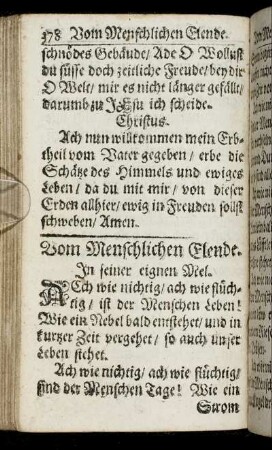 378 Vom Menschlichen Elende.
schnödes Gebäude/ Ade O Wollust
du süsse doch zeitliche Freude/ bey dir
O Welt/ mir es nicht länger gefällt/
darumb zu JEsu ich scheide.
Christus.
Ach nun willkommen mein Erb-
theil vom Vater gegeben/ erbe die
Schätze des Himmels und ewiges
Leben/ da du mit mir/ von dieser
Erden allhier/ ewig in Freuden sollst
schweben/ Amen.
Vom Menschlichen Elende.
In seiner eignen Mel.
ACch wie nichtig/ ach wie flüch-
tig/ ist der Menschen Leben!
Wie ein Nebel bald entstehet/ und in
kurtzer Zeit vergehet/ so auch unser
Leben stehet.
Ach wie nichtig/ ach wie flüchtig/
sind der Menschen Tage! Wie ein
Strom